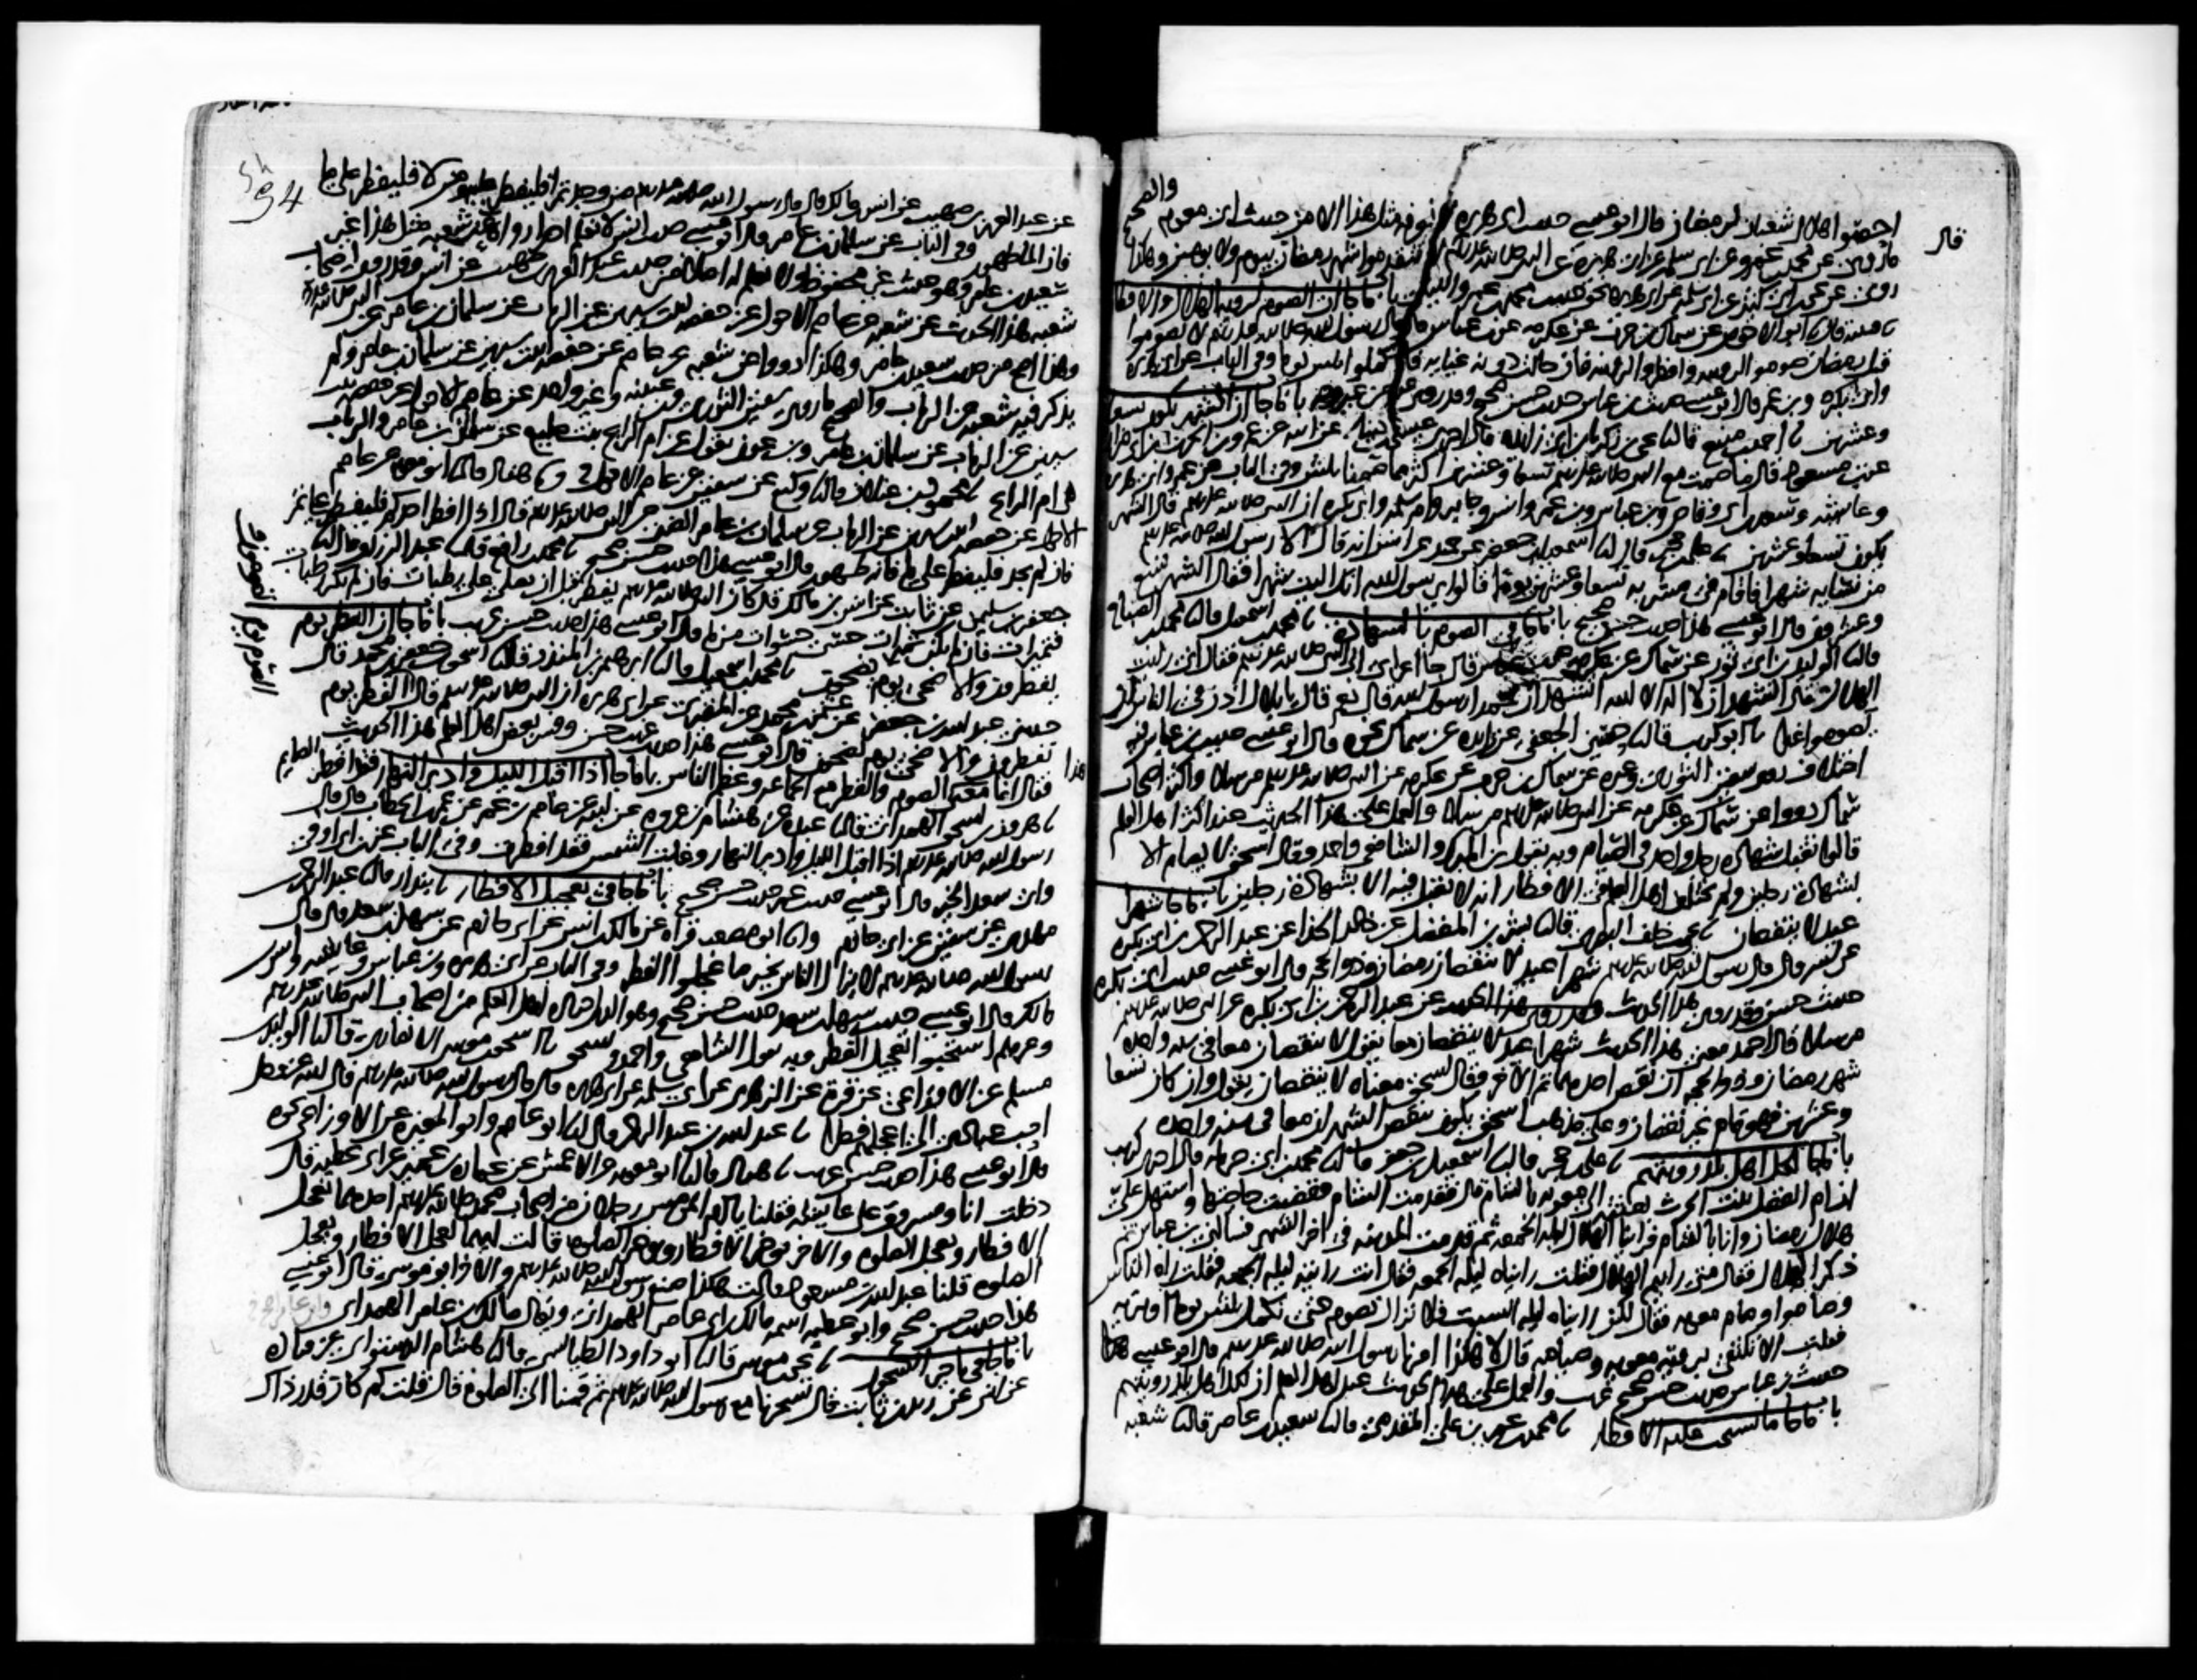 احصوا هلال شعبان لرمضان قال ابو عيسى حديث ابي هريرة لا نعرفه مثل هذا الا من حديث ابي معوية والصحيح
ما روي عن محمد بن عمرو عن ابي سلمة عن ابي هريرة عن النبي صلى الله عليه وسلم لا تقدموا شهر رمضان بيوم ولا يومين وهكذا
روي عن يحيى بن ابي كثير عن ابي سلمة عن ابي هريرة نحو حديث محمد بن عمرو الليثي باب ما جا ان الصوم لروية الهلال والافطار
قتيبة قال نا ابو الاحوص عن سماك بن حرب عن عكرمة عن ابن عباس قال قال رسول الله صلى الله عليه وسلم لا تصوموا
قبل رمضان صوموا لرويته وافطروا لرويته فان حالت دونه غيابة فاكملوا ثلثين يوما وفي الباب عن ابي هريرة
وابي بكرة وبن عمر قال ابو عيسى حديث بن عباس حديث حسن صحيح وقد روي عنه من غير وجه باب ما جا ان الشهر يكون تسعا
وعشرين نا احمد بن منيع قال نا يحيى بن زكريا بن ابي زائدة قال اخبرني عيسى بن دينار عن ابيه عن عمرو بن الحرث بن ابي ضرار
عن بن مسعود قال ما صمت مع النبي صلى الله عليه وسلم تسعا وعشرين اكثر مما صمنا ثلثين وفي الباب عن عمر وابي هريرة
وعايشة وسعد بن ابي وقاص وبن عباس وبن عمر وانس وجابر وام سلمة وابي بكرة ان النبي صلى الله عليه وسلم قال الشهر
يكون تسعا وعشرين نا علي بن حجر قال نا اسمعيل بن جعفر عن حميد عن انس انه قال الا رسول الله صلى الله عليه وسلم
من نسايه شهرا فاقام في مشربة تسعا وعشرين يوما قالوا يا رسول الله انك اليت شهرا فقال الشهر تسع
وعشرون قال ابو عيسى هذا حديث حسن صحيح باب ما جا في الصوم بالشهادة نا محمد بن اسمعيل قال نا محمد بن الصباح
قال نا الوليد بن ابي ثور عن سماك عن عكرمة عن بن عباس قال جا اعرابي الى النبي صلى الله عليه وسلم فقال اني رايت
الهلال قال اتشهد ان لا اله الا الله اتشهد ان محمدا رسول الله قال نعم قال يا بلال اذن في الناس ان
يصوموا غدا نا ابو كريب قال نا حسين الجعفي عن زايدة عن سماك نحوه قال ابو عيسى حديث بن عباس فيه
اختلاف روى سفين الثوري وغيره عن سماك بن حرب عن عكرمة عن النبي صلى الله عليه وسلم مرسلا واكثر اصحاب
سماك رووا عن سماك عن عكرمة عن النبي صلى الله عليه وسلم مرسلا والعمل على هذا الحديث عند اكثر اهل العلم
قالوا تقبل شهادة رجل واحد في الصيام وبه يقول بن المبارك والشافعي واحمد وقال اسحق لا يصام الا
بشهادة رجلين ولم يختلف اهل العلم في الافطار انه لا يقبل فيه الا بشهادة رجلين باب ما جا شهرا
عيد لا ينقصان نا يحيى بن خلف البصري قال نا بشر بن المفضل عن خالد الحذا عن عبد الرحمن بن ابي بكرة
عن ابيه قال قال رسول الله صلى الله عليه وسلم شهرا عيد لا ينقصان رمضان وذو الحجة قال ابو عيسى حديث ابي بكرة
حديث حسن وقد روي هذا الحديث عن عبد الرحمن بن ابي بكرة عن النبي صلى الله عليه وسلم
مرسلا قال احمد معنى هذا الحديث شهرا عيد لا ينقصان معا يقول لا ينقصان معا في سنة واحدة
شهر رمضان وذو الحجة ان نقص احدهما تم الاخر وقال اسحق معناه لا ينقصان يقول وان كان تسعا
وعشرين فهو تمام غير نقصان وعلى مذهب اسحق يكون ينقص الشهران معا في سنة واحدة
باب ما جا لكل اهل بلد رويتهم نا علي بن حجر قال نا اسمعيل بن جعفر قال نا محمد بن ابي حرملة قال اخبرني كريب
ان ام الفضل بنت الحرث بعثته الى معوية بالشام قال فقدمت الشام فقضيت حاجتها واستهل علي
هلال رمضان وانا بالشام فراينا الهلال ليلة الجمعة ثم قدمت المدينة في اخر الشهر فسالني بن عباس ثم
ذكر الهلال فقال متى رايتم الهلال فقلت رايناه ليلة الجمعة فقال انت رايته ليلة الجمعة فقلت راه الناس
وصاموا وصام معوية فقال لكن رايناه ليلة السبت فلا نزال نصوم حتى نكمل ثلثين يوما او نراه
فقلت الا تكتفي بروية معوية وصيامه قال لا هكذا امرنا رسول الله صلى الله عليه وسلم قال ابو عيسى
حديث بن عباس حديث حسن صحيح غريب والعمل على هذا الحديث عند اهل العلم ان لكل اهل بلد رويتهم
باب ما جا ما يستحب عليه الافطار نا محمد بن عمر بن علي المقدمي قال نا سعيد بن عامر قال نا شعبة
قال
94
عن عبد العزيز بن صهيب عن انس بن مالك قال قال رسول الله صلى الله عليه وسلم من وجد تمرا فليفطر عليه ومن لا فليفطر على ما
فان الما طهور وفي الباب عن سلمان بن عامر قال ابو عيسى حديث انس لا نعلم احدا رواه عن شعبة مثل هذا غير
سعيد بن عامر وهو حديث غير محفوظ ولا نعلم له اصلا من حديث عبد العزيز بن صهيب عن انس وقد روى اصحاب
شعبة هذا الحديث عن شعبة عن عاصم الاحول عن حفصة بنت سيرين عن الرباب عن سلمان بن عامر عن النبي صلى الله عليه
وهذا اصح من حديث سعيد بن عامر وهكذا رووا عن شعبة عن عاصم عن حفصة بنت سيرين عن سلمان بن عامر ولم
يذكر فيه شعبة عن الرباب والصحيح ما روى سفين الثوري وبن عيينة وغير واحد عن عاصم الاحول عن حفصة بنت
سيرين عن الرباب عن سلمان بن عامر وبن عون يقول عن ام الرايح بنت صليع عن سلمان بن عامر والرباب
هي ام الرايح نا محمود بن غيلان قال نا وكيع عن سفين عن عاصم الاحول ح ونا هناد قال نا ابو معوية عن عاصم
الاحول عن حفصة بنت سيرين عن الرباب عن سلمان بن عامر الضبي عن النبي صلى الله عليه وسلم قال اذا افطر احدكم فليفطر على تمر
فان لم يجد فليفطر على ما فانه طهور قال ابو عيسى هذا حديث حسن صحيح نا محمد بن رافع قال نا عبد الرزاق قال نا
جعفر بن سليمن عن ثابت عن انس بن مالك قال كان النبي صلى الله عليه وسلم يفطر قبل ان يصلي على رطبات فان لم تكن رطبات
فتميرات فان لم تكن تميرات حسى حسوات من ما قال ابو عيسى هذا حديث حسن غريب باب ما جا ان الفطر يوم
يفطرون والاضحى يوم يضحون نا محمد بن اسمعيل قال نا ابرهيم بن المنذر قال نا اسحق بن جعفر بن محمد قال
حدثني عبد الله بن جعفر عن عثمن بن محمد عن المقبري عن ابي هريرة ان النبي صلى الله عليه وسلم قال الفطر يوم
تفطرون والاضحى يوم تضحون قال ابو عيسى هذا حديث غريب حسن وفسر بعض اهل العلم هذا الحديث
فقال انما معنى هذا الصوم والفطر مع الجماعة وعظم الناس باب ما جا اذا اقبل الليل وادبر النهار فقد افطر الصايم
نا هرون بن اسحق الهمداني قال نا عبدة عن هشام بن عروة عن ابيه عن عاصم بن عمر عن عمر بن الخطاب قال قال
رسول الله صلى الله عليه وسلم اذا اقبل الليل وادبر النهار وغابت الشمس فقد افطرت وفي الباب عن بن ابي اوفى
وابي سعد الخير قال ابو عيسى حديث عمر حديث حسن صحيح باب ما جا في تعجيل الافطار نا بندار قال نا عبد الرحمن بن
مهدي عن سفين عن ابي حازم ونا ابو مصعب قراة عن مالك بن انس عن ابي حازم عن سهل بن سعد قال قال
رسول الله صلى الله عليه وسلم لا يزال الناس بخير ما عجلوا الفطر وفي الباب عن ابي هريرة وبن عباس وعايشة وانس بن
مالك قال ابو عيسى حديث سهل بن سعد حديث حسن صحيح وهو الذي اختاره اهل العلم من اصحاب النبي صلى الله عليه وسلم
وغيرهم استحبوا تعجيل الفطر وبه يقول الشافعي واحمد واسحق نا اسحق بن موسى الانصاري قال نا الوليد بن
مسلم عن الاوزاعي عن قرة عن الزهري عن ابي سلمة عن ابي هريرة قال قال رسول الله صلى الله عليه وسلم قال الله عز وجل
احب عبادي الي اعجلهم فطرا نا عبد الله بن عبد الرحمن قال نا ابو عاصم وابو المغيرة عن الاوزاعي نحوه
قال ابو عيسى هذا حديث حسن غريب نا هناد قال نا ابو معوية عن الاعمش عن عمارة بن عمير عن ابي عطية قال
دخلت انا ومسروق على عايشة فقلنا يا ام المومنين رجلان من اصحاب محمد صلى الله عليه وسلم احدهما يعجل
الافطار ويعجل الصلوة والاخر يوخر الافطار ويوخر الصلوة قالت ايهما يعجل الافطار ويعجل
الصلوة قلنا عبد الله بن مسعود قالت هكذا صنع رسول الله صلى الله عليه وسلم والاخر ابو موسى قال ابو عيسى
هذا حديث حسن صحيح وابو عطية اسمه مالك بن ابي عامر الهمداني ويقال مالك بن عامر الهمداني
باب ما جا في تاخير السحور نا يحيى بن موسى قال نا ابو داود الطيالسي قال نا هشام الدستوائي عن قتادة
عن انس عن زيد بن ثابت قال تسحرنا مع رسول الله صلى الله عليه وسلم ثم قمنا الى الصلوة قال قلت كم كان قدر ذاك
الصوم يوم تصومون